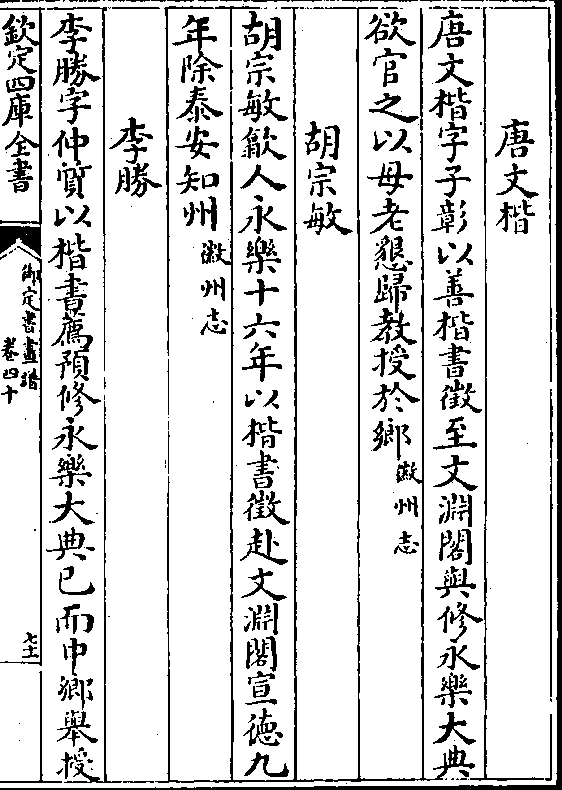 唐文楷
唐文楷字子彰以善楷書徴至文淵閣與修永樂大典
欲官之以母老懇歸教授於鄉徽州志
胡宗敏
胡宗敏歙人永樂十六年以楷書徴赴文淵閣宣徳九
年除泰安知州徽州志
李勝
李勝字仲質以楷書薦預修永樂大典已而中鄉舉授
欽定四庫全書
御定書畫譜
卷四十